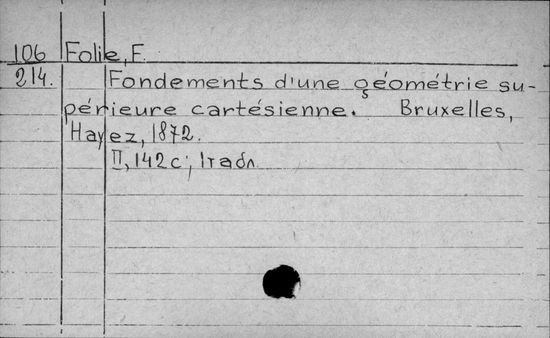 106 Folie, F.
214. Fondements d'une géométrie su-
périeure cartésienne. Bruxelles,
Hayez, 1872.
II, 142 с; 1 табл